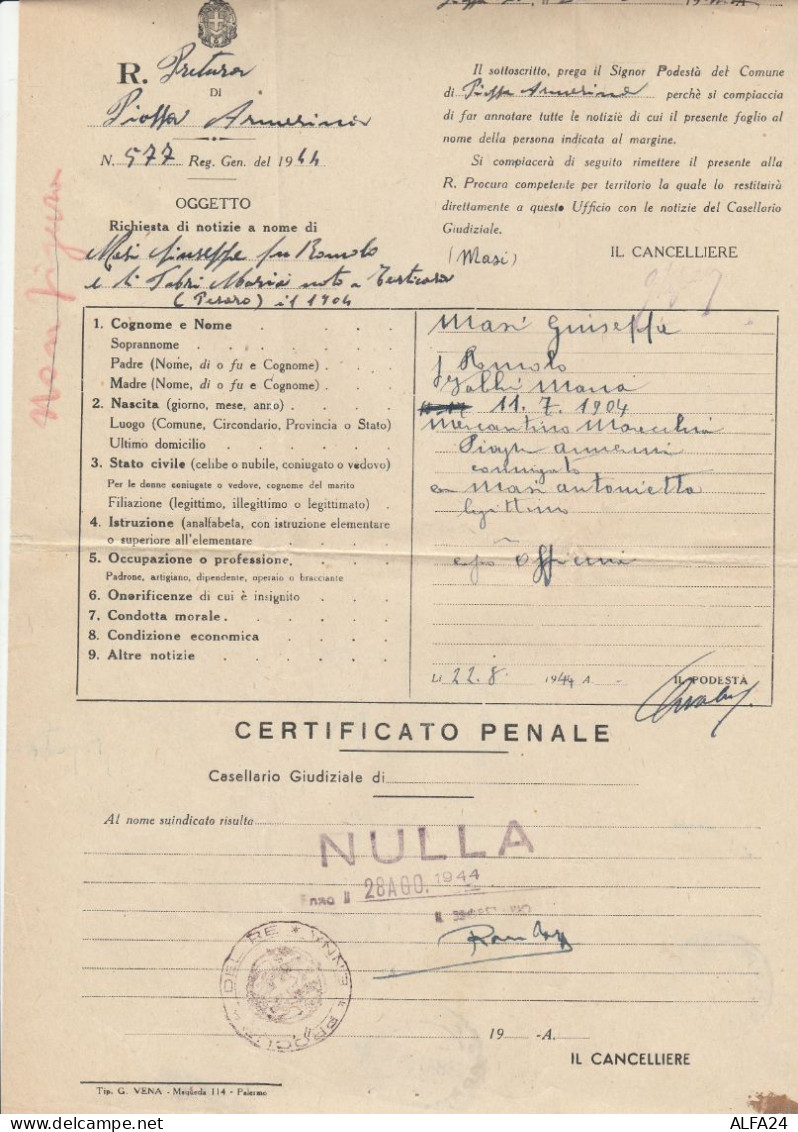 R. Pretura
DI
Piazza Armerina
N. 577 Reg. Gen. del 1944
OGGETTO
Richiesta di notizie a nome di
Masi Giuseppe fu Romolo
e di Fabri Maria nato a
(Pesaro) il 1904
Non figura
Il sottoscritto, prega il Signor Podestà del Comune
di Piazza Armerina perchè si compiaccia
di far annotare tutte le notizie di cui il presente foglio al
nome della persona indicata al margine.
Si compiacerà di seguito rimettere il presente alla
R. Procura competente per territorio la quale lo restituirà
direttamente a questo Ufficio con le notizie del Casellario
Giudiziale.
(Masi) IL CANCELLIERE
1. Cognome e Nome Masi Giuseppe
Soprannome
Padre (Nome, di o fu e Cognome) f Romolo
Madre (Nome, di o fu e Cognome) Fabbri Maria
2. Nascita (giorno, mese, anno) 11.7.1904
Luogo (Comune, Circondario, Provincia o Stato) Mercantino Marecchia
Ultimo domicilio Piazza Armerina
3. Stato civile (celibe o nubile, coniugato o vedovo) coniugato
Per le donne coniugate o vedove, cognome del marito con Masi Antonietta
Filiazione (legittimo, illegittimo o legittimato) legittimo
4. Istruzione (analfabeta, con istruzione elementare
o superiore all'elementare
5. Occupazione o professione capo officina
Padrone, artigiano, dipendente, operaio o bracciante
6. Onorificenze di cui è insignito
7. Condotta morale
8. Condizione economica
9. Altre notizie
Lì 22.8. 1944 A. IL PODESTÀ
CERTIFICATO PENALE
Casellario Giudiziale di
Al nome suindicato risulta
NULLA
28 AGO. 1944
DEL RE
19 -A.
IL CANCELLIERE
Tip. G. VENA - Maqueda 114 - Palermo
ALFA24